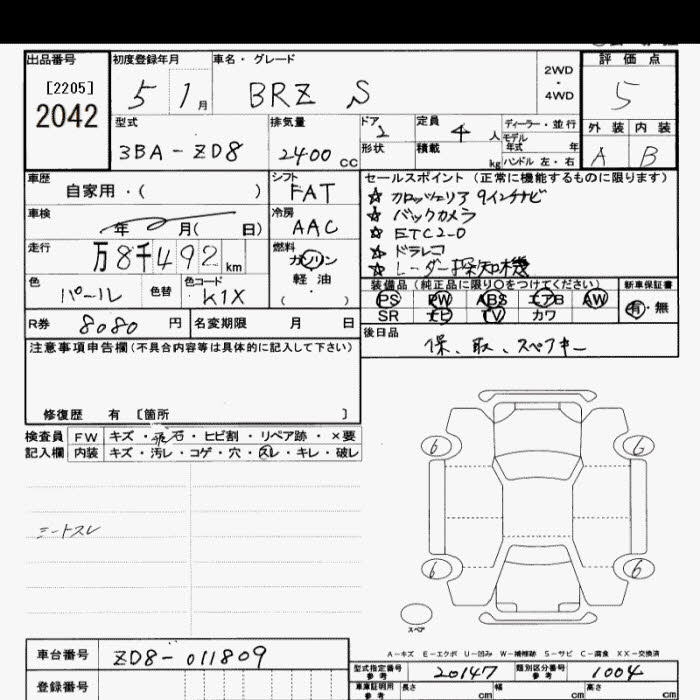 出品番号 初度登録年月 車名・グレード 評価点
[2205] 5 1月 BRZ S 2WD・4WD 5
2042
型式 排気量 ドア 定員 ディーラー・並行 外装 内装
3BA-ZD8 2400cc 2 4人 モデル年式 年 A B
形状 積載 kg ハンドル 左・右
車歴 シフト セールスポイント(正常に機能するものに限ります)
自家用・( ) FAT ☆ カロッツェリア 9インチナビ
車検 冷房 ☆ バックカメラ
年 月( 日) AAC ☆ ETC2-0
走行 燃料 ☆ ドラレコ
万8千492km ガソリン ☆ レーダー探知機
色 色替 色コード 軽油 装備品(純正品に限り○をつけてください) 新車保証書
パール K1X ( ) PS PW ABS エアB AW 有・無
SR ナビ TV カワ
R券 8080円 名変期限 月 日 後日品
保、取、スペアキー
注意事項申告欄(不具合内容等は具体的に記入して下さい)
修復歴 有 [箇所 ]
検査員 FW キズ・飛石・ヒビ割・リペア跡・×要
記入欄 内装 キズ・汚レ・コゲ・穴・スレ・キレ・破レ
シートスレ
6 6
6 6
スペア
A-キズ E-エクボ U-凹み W-補修跡 S-サビ C-腐食 XX-交換済
車台番号 ZD8-011809 型式指定番号 参考 20147 類別区分番号 参考 1004
登録番号 車庫証明用 参考 長さ cm 幅 cm 高さ cm